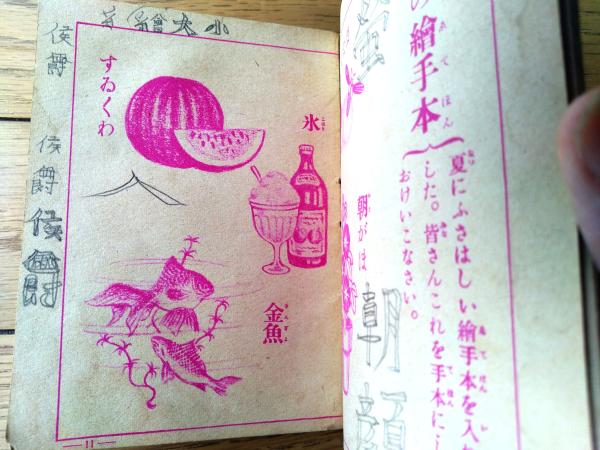 の繪手本
ゑてほん
夏にふさはしい繪手本を入れ
した。皆さんこれを手本にし
おけいこなさい。
朝がほ
朝
顔
小大繪
すゐくわ
氷
金魚
きんぎよ
侯爵
侯爵
侯爵
11